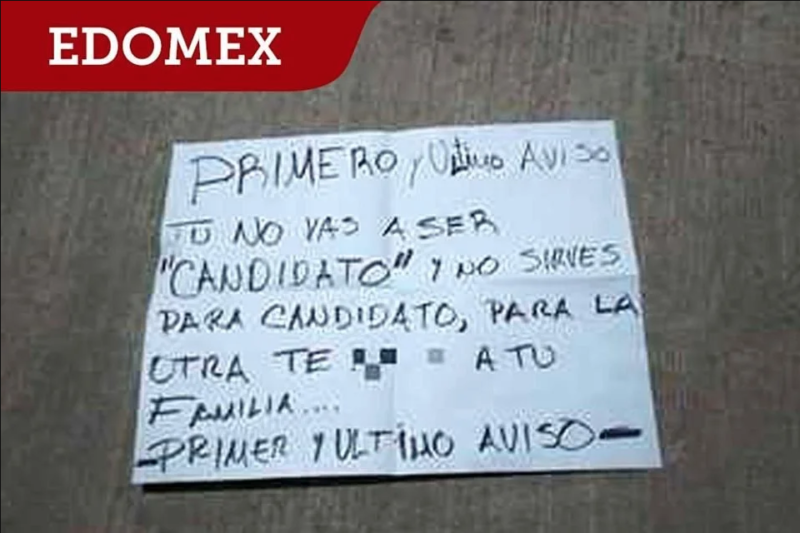 EDOMEX
PRIMERO y Ultimo AVISO
TU NO VAS A SER
"CANDIDATO" Y NO SIRVES
PARA CANDIDATO, PARA LA
OTRA TE A TU
FAMILIA....
-PRIMER Y ULTIMO AVISO-